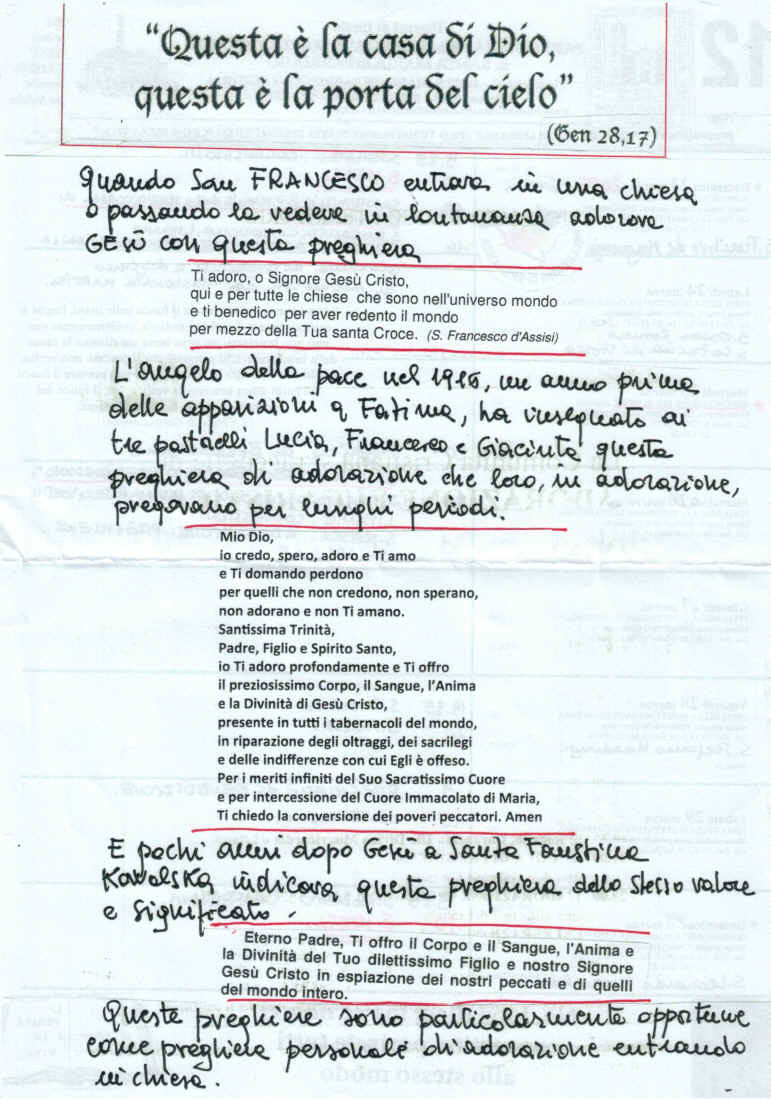 “Questa è la casa di Dio,
questa è la porta del cielo”
(Gen 28,17)
Quando San FRANCESCO entrava in una chiesa
o passando la vedeva in lontananza adorava
GESÙ con questa preghiera
Ti adoro, o Signore Gesù Cristo,
qui e per tutte le chiese che sono nell'universo mondo
e ti benedico per aver redento il mondo
per mezzo della Tua santa Croce. (S. Francesco d'Assisi)
L'angelo della pace nel 1916, un anno prima
delle apparizioni a Fatima, ha insegnato ai
tre pastorelli Lucia, Francesco e Giacinta questa
preghiera di adorazione che loro, in adorazione,
pregavano per lunghi periodi.
Mio Dio,
io credo, spero, adoro e Ti amo
e Ti domando perdono
per quelli che non credono, non sperano,
non adorano e non Ti amano.
Santissima Trinità,
Padre, Figlio e Spirito Santo,
io Ti adoro profondamente e Ti offro
il preziosissimo Corpo, il Sangue, l’Anima
e la Divinità di Gesù Cristo,
presente in tutti i tabernacoli del mondo,
in riparazione degli oltraggi, dei sacrilegi
e delle indifferenze con cui Egli è offeso.
Per i meriti infiniti del Suo Sacratissimo Cuore
e per intercessione del Cuore Immacolato di Maria,
Ti chiedo la conversione dei poveri peccatori. Amen
E pochi anni dopo Gesù a Santa Faustina
Kowalska indicava questa preghiera dello stesso valore
e significato.
Eterno Padre, Ti offro il Corpo e il Sangue, l'Anima e
la Divinità del Tuo dilettissimo Figlio e nostro Signore
Gesù Cristo in espiazione dei nostri peccati e di quelli
del mondo intero.
Queste preghiere sono particolarmente opportune
come preghiera personale di adorazione entrando
in chiesa.